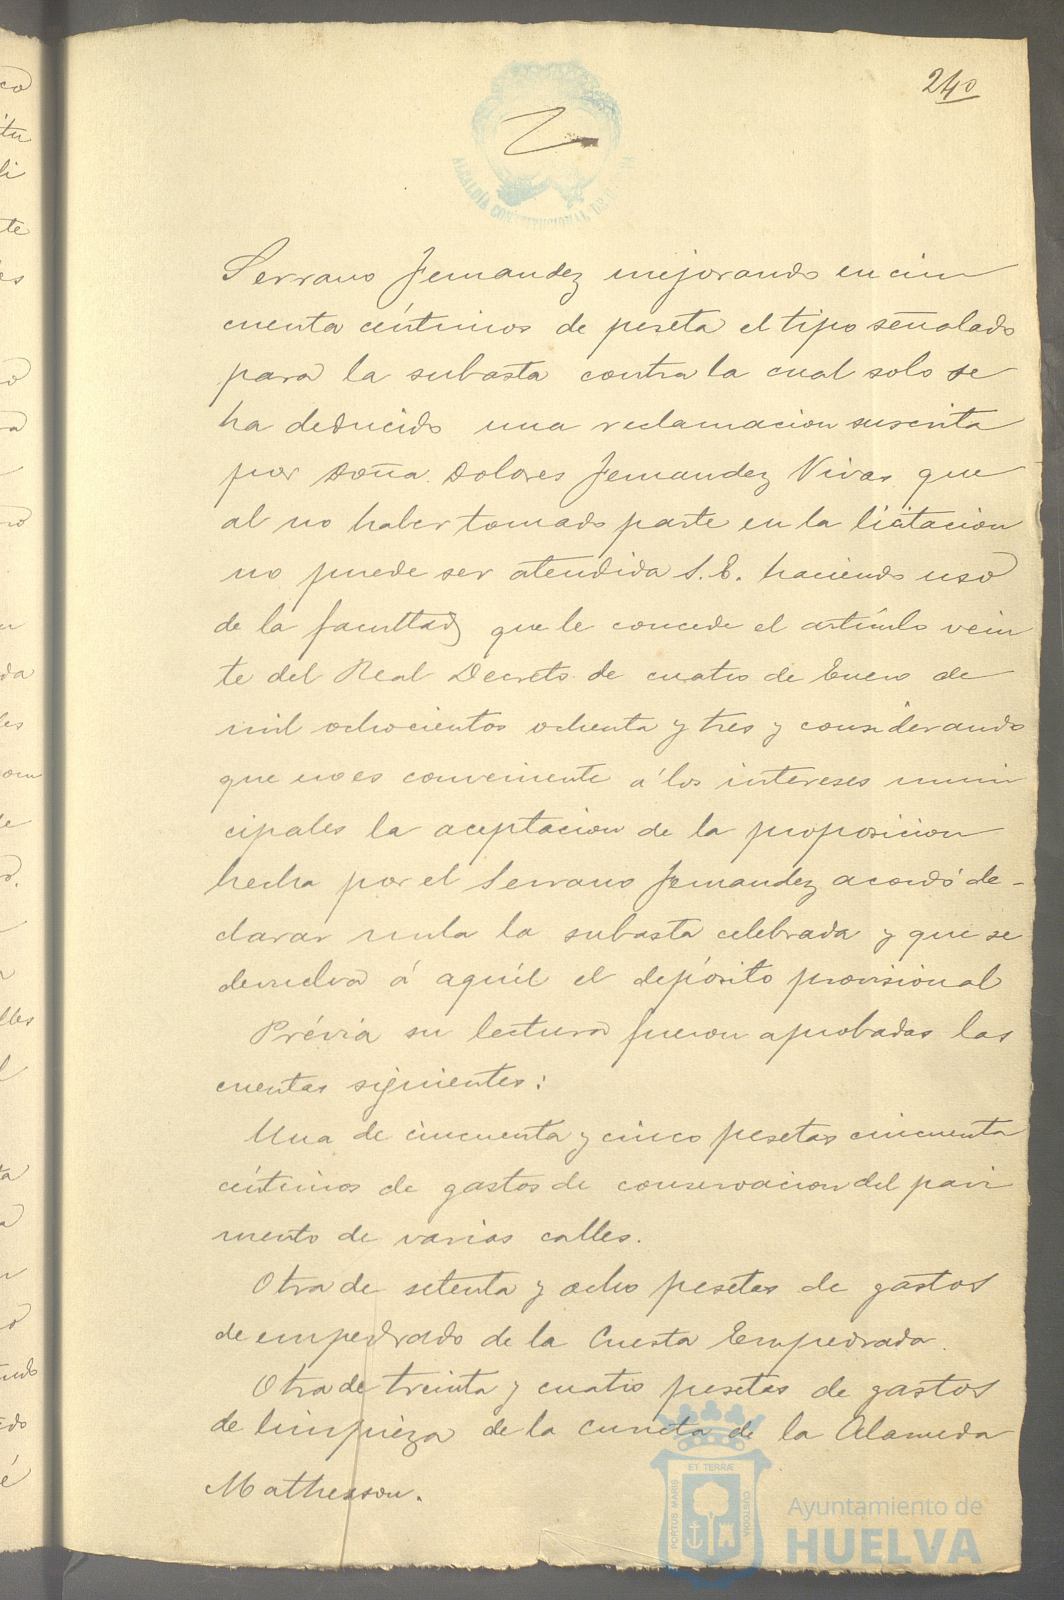 240
ALCALDÍA CONSTITUCIONAL DE HUELVA
Serrano Fernandez mejorando en cin
cuenta céntimos de peseta el tipo señalado
para la subasta contra la cual solo se
ha deducido una reclamacion suscrita
por Doña Dolores Fernandez Vivas que
al no haber tomado parte en la licitacion
no puede ser atendida S. E. haciendo uso
de la facultad que le concede el artículo vein
te del Real Decreto de cuatro de Enero de
mil ochocientos ochenta y tres y considerando
que no es conveniente á los intereses muni
cipales la aceptacion de la proposicion
hecha por el Serrano Fernandez acordó de-
clarar nula la subasta celebrada y que se
devuelva á aquél el depósito provisional
Prévia su lectura fueron aprobadas las
cuentas siguientes:
Una de cincuenta y cinco pesetas cincuenta
céntimos de gastos de conservacion del pavi
mento de varias calles.
Otra de setenta y ocho pesetas de gastos
de empedrado de la Cuesta Empedrada.
Otra de treinta y cuatro pesetas de gastos
de limpieza de la cuneta de la Alameda
Mathesson.
ET TERRÆ
PORTUS MARIS
CUSTODIA
Ayuntamiento de
HUELVA